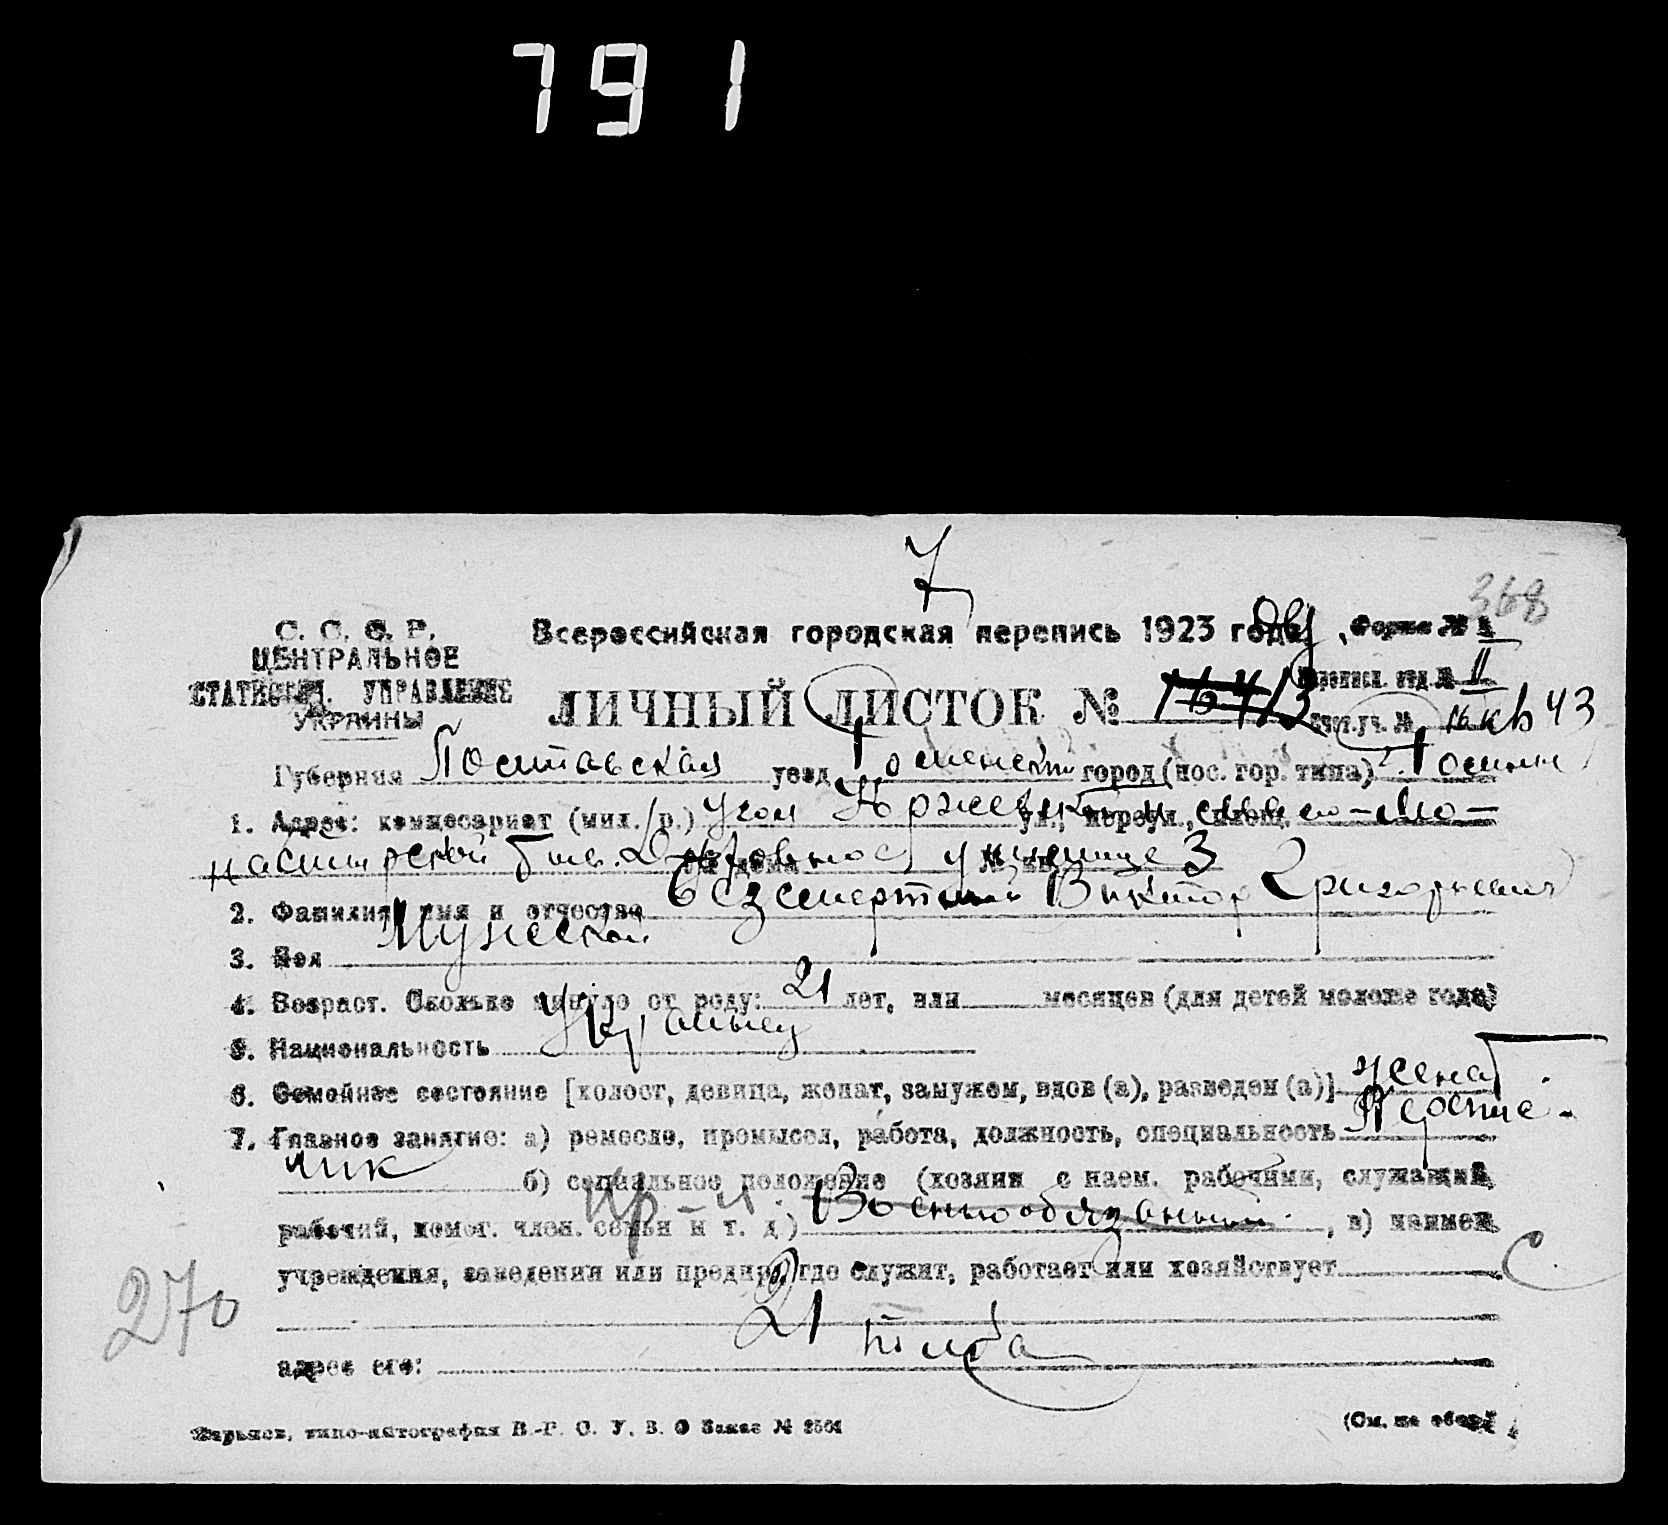 791
7
368
С. С. С. Р.
ЦЕНТРАЛЬНОЕ
СТАТИСТИЧ. УПРАВЛЕНИЕ
УКРАИНЫ
Всероссийская городская перепись 1923 года, Форма № 1
Переписн. отд. № II
ЛИЧНЫЙ ЛИСТОК №
Счетн. уч. № 16 кв 43
Губерния Полтавская уезд Роменский город (пос. гор. типа) г. Ромны
1. Адрес: комиссариат (мил. р.) угол ул., переул., площ.
№ дома № кв. 3
2. Фамилия, имя и отчество Безсмертный Виктор Григорьевич
3. Пол Мужской
4. Возраст. Сколько минуло от роду: 21 лет, или месяцев (для детей моложе года)
5. Национальность Украинец
6. Семейное состояние [холост, девица, женат, замужем, вдов (а), разведен (а)] женат.
7. Главное занятие: а) ремесло, промысел, работа, должность, специальность
б) социальное положение (хозяин с наем. рабочими, служащий,
рабочий, помог. член. семьи и т. д.) Военнообязанный , в) наимен.
учреждения, заведения или предпр., где служит, работает или хозяйствует
270
21
адрес его:
Харьков, типо-литография В.-Р. С. У. В. О Заказ № 2501
(См. на обор.)